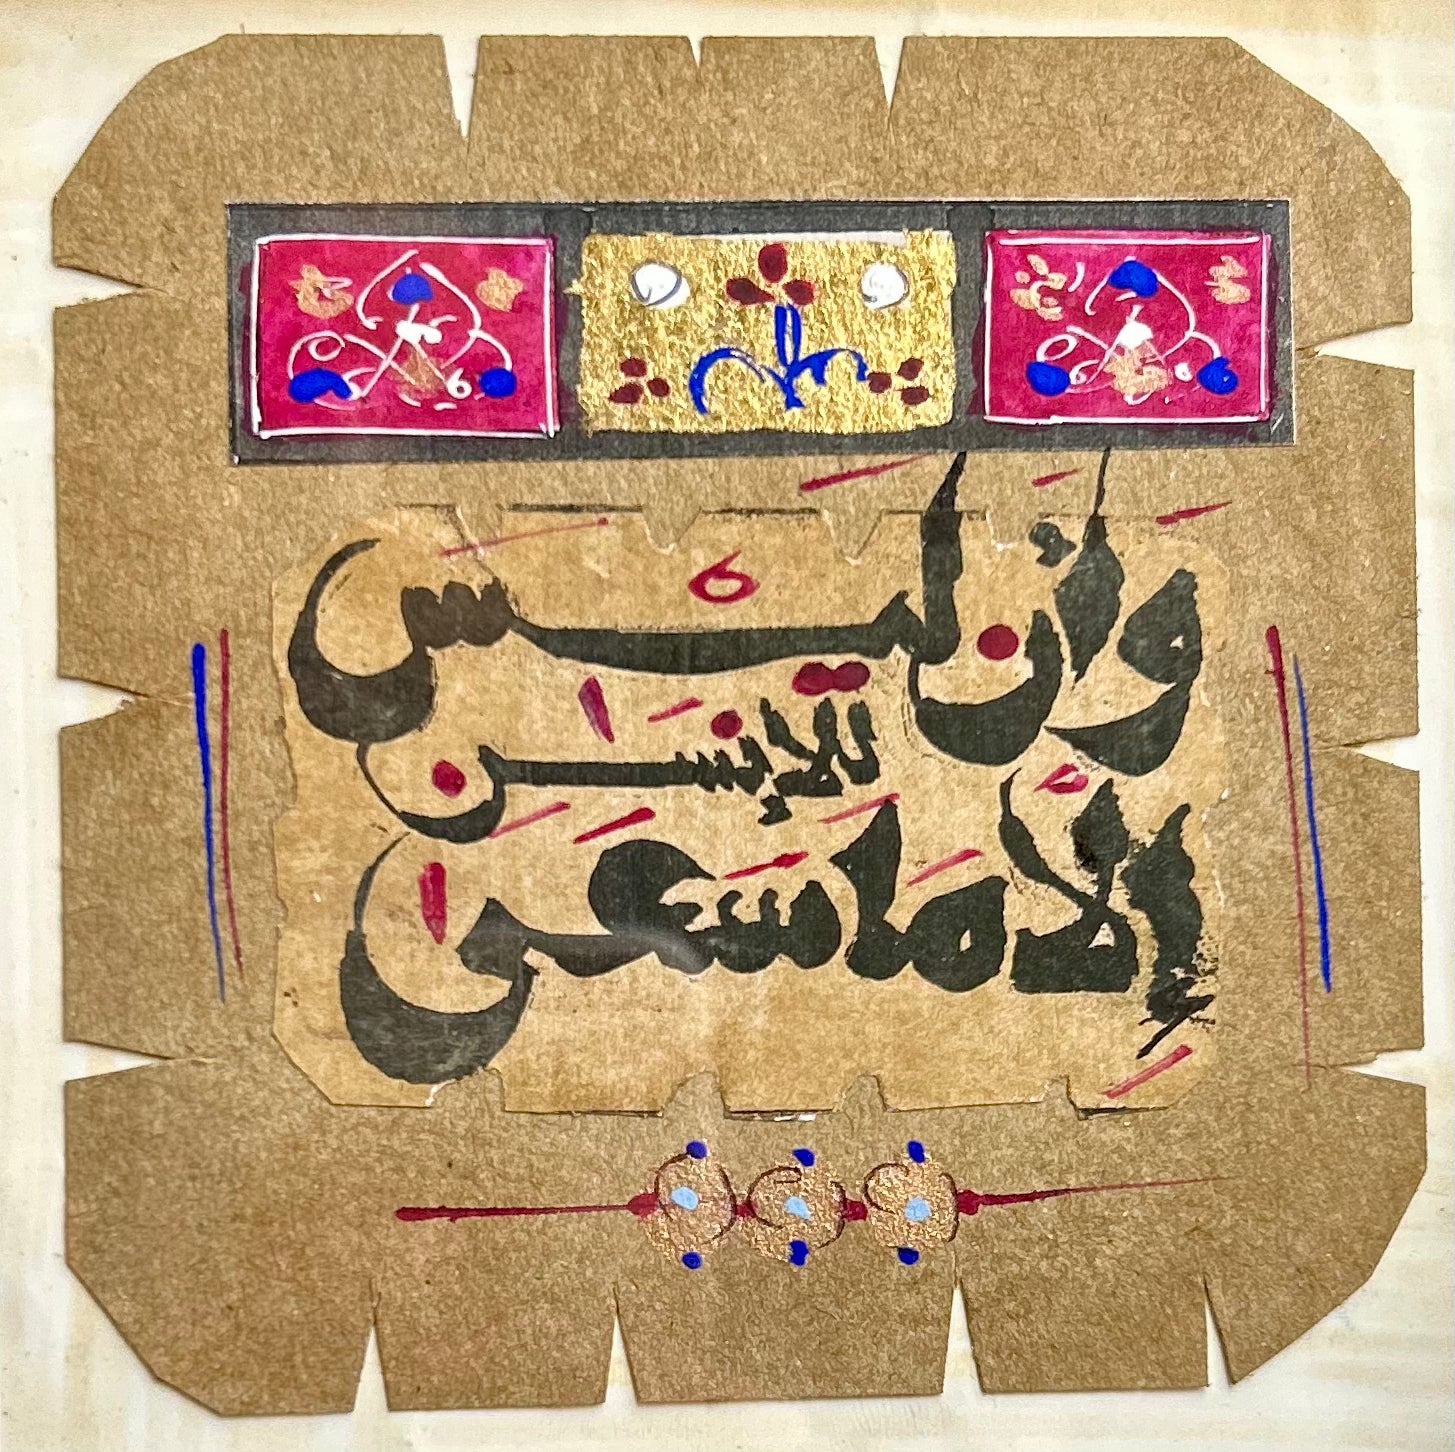 وَأَن لَّيْسَ
لِلْإِنسَٰنِ
إِلَّا مَا سَعَىٰ